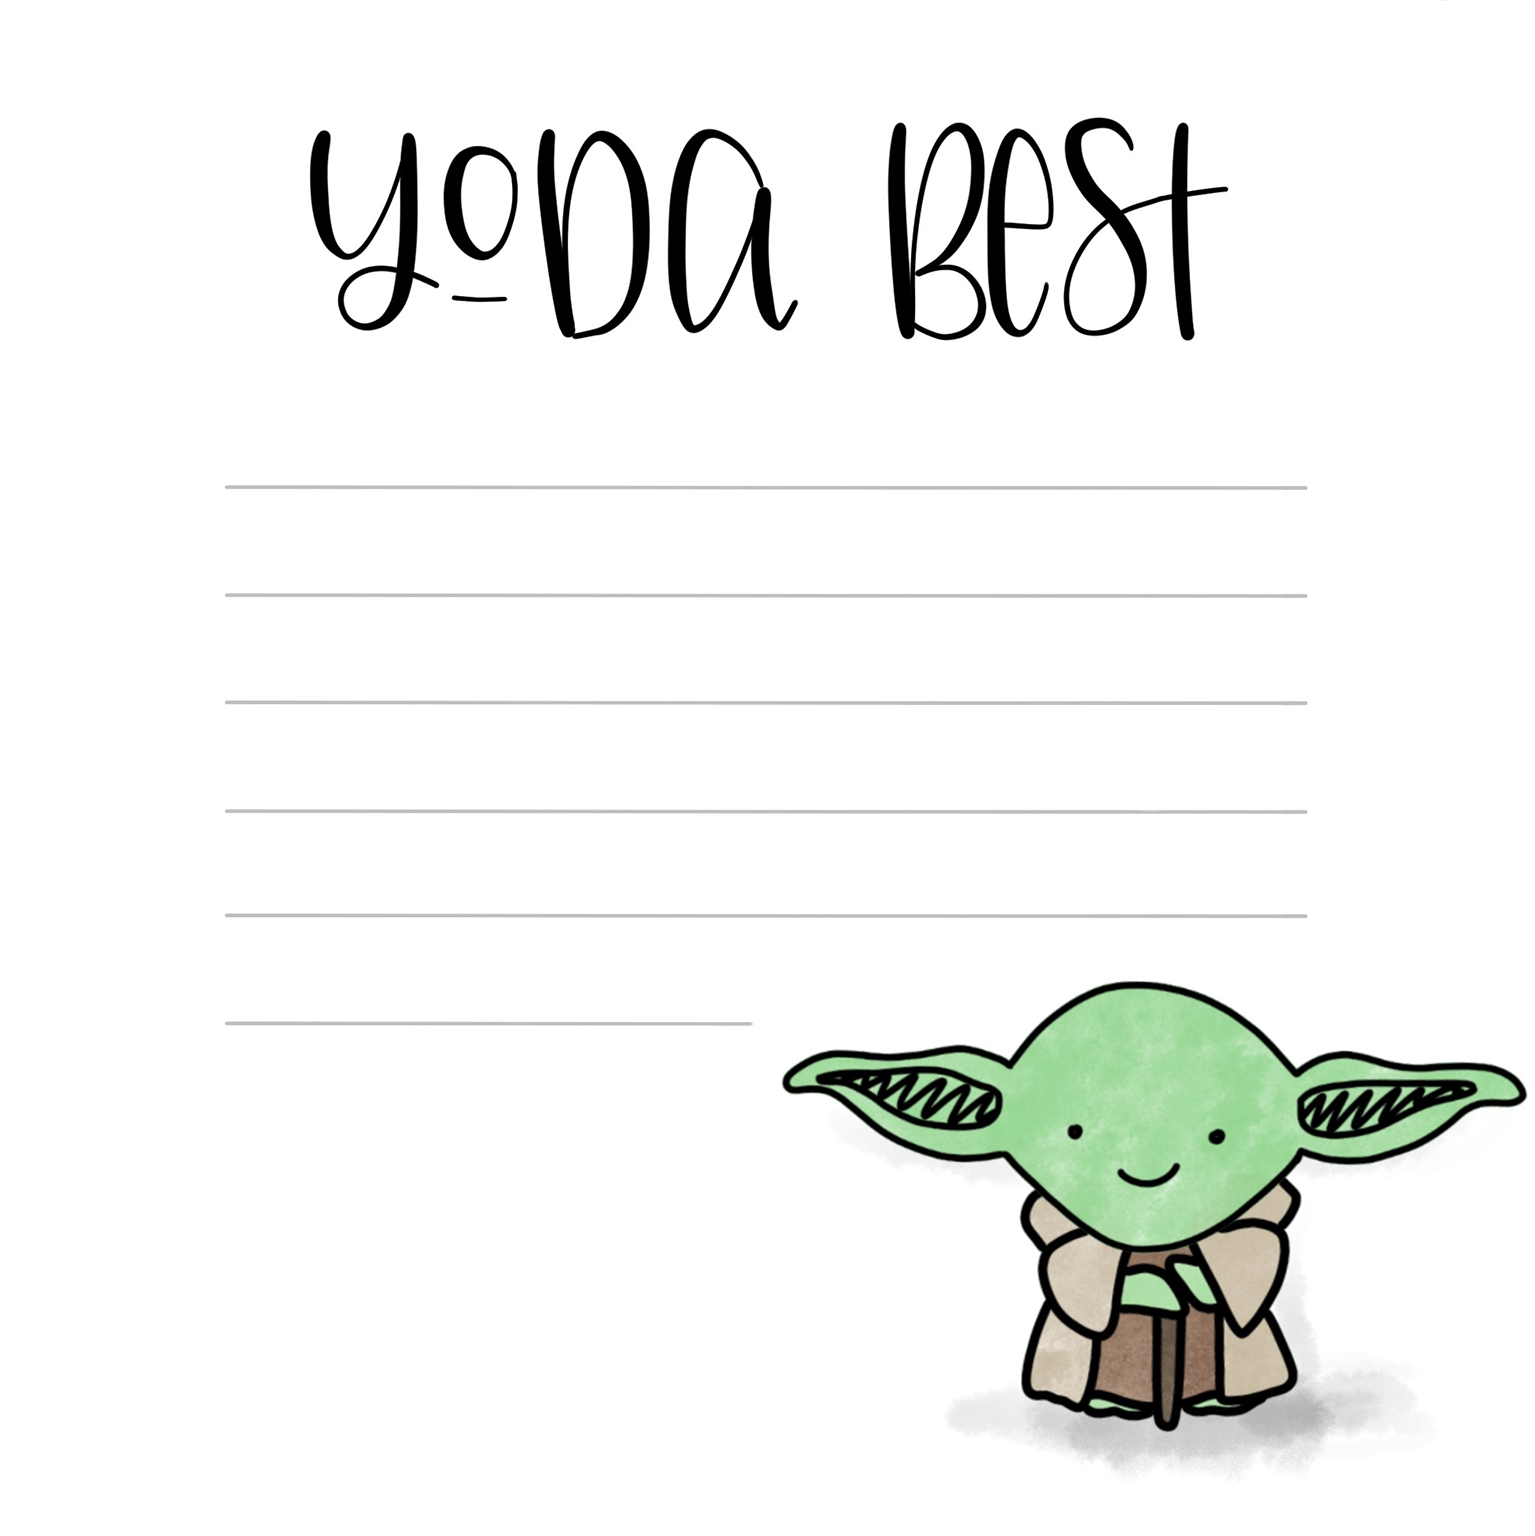 YoDa BeST